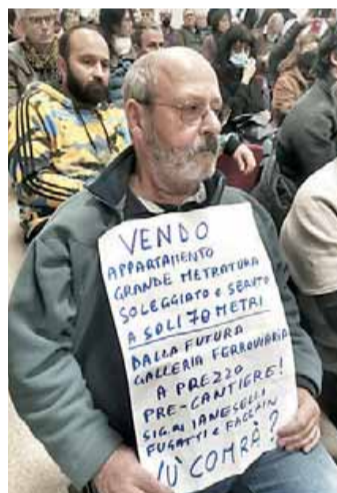 VENDO
APPARTAMENTO
GRANDE METRATURA
SOLEGGIATO e SERVITO
A SOLI 70 METRI
DALLA FUTURA
GALLERIA FERROVIARIA
A PREZZO
PRE-CANTIERE!
SIG.RI IANESELLI
FUGATTI e FACCHIN
VU' COMRÀ?